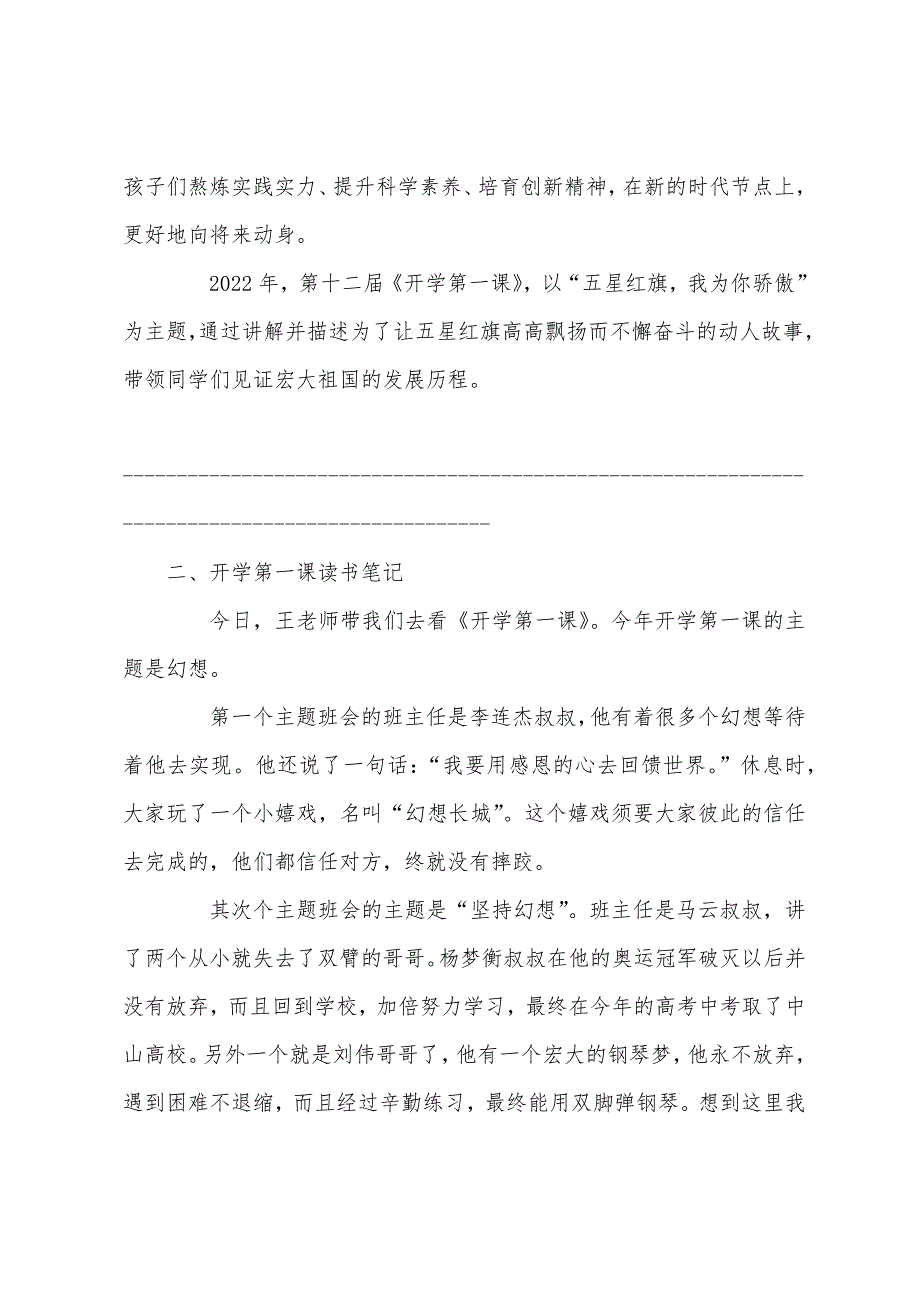 孩子们熬炼实践实力、提升科学素养、培育创新精神，在新的时代节点上，
更好地向将来动身。
2022 年，第十二届《开学第一课》，以“五星红旗，我为你骄傲”
为主题，通过讲解并描述为了让五星红旗高高飘扬而不懈奋斗的动人故事，
带领同学们见证宏大祖国的发展历程。
---------------------------------------------------------------
----------------------------------
二、开学第一课读书笔记
今日，王老师带我们去看《开学第一课》。今年开学第一课的主
题是幻想。
第一个主题班会的班主任是李连杰叔叔，他有着很多个幻想等待
着他去实现。他还说了一句话：“我要用感恩的心去回馈世界。”休息时，
大家玩了一个小嬉戏，名叫“幻想长城”。这个嬉戏须要大家彼此的信任
去完成的，他们都信任对方，终就没有摔跤。
其次个主题班会的主题是“坚持幻想”。班主任是马云叔叔，讲
了两个从小就失去了双臂的哥哥。杨梦衡叔叔在他的奥运冠军破灭以后并
没有放弃，而且回到学校，加倍努力学习，最终在今年的高考中考取了中
山高校。另外一个就是刘伟哥哥了，他有一个宏大的钢琴梦，他永不放弃，
遇到困难不退缩，而且经过辛勤练习，最终能用双脚弹钢琴。想到这里我